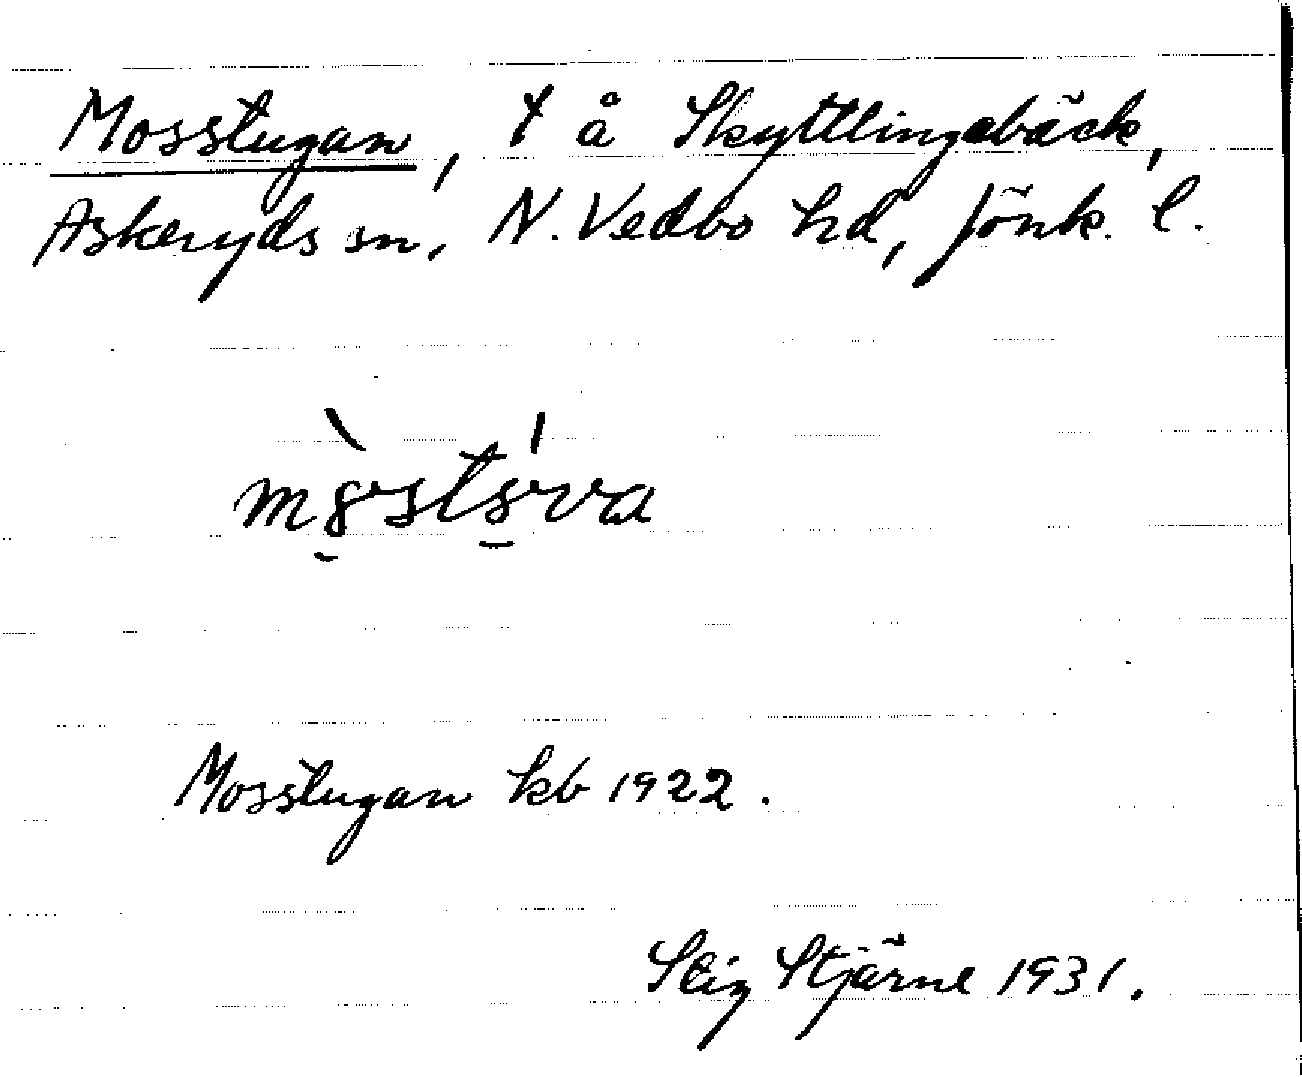 Mosstugan, t å Skyttlingebäck,
Askeryds sn, N. Vedbo hd, Jönk. l.
Mosstugan kb 1922.
Stig Stjärne 1931.